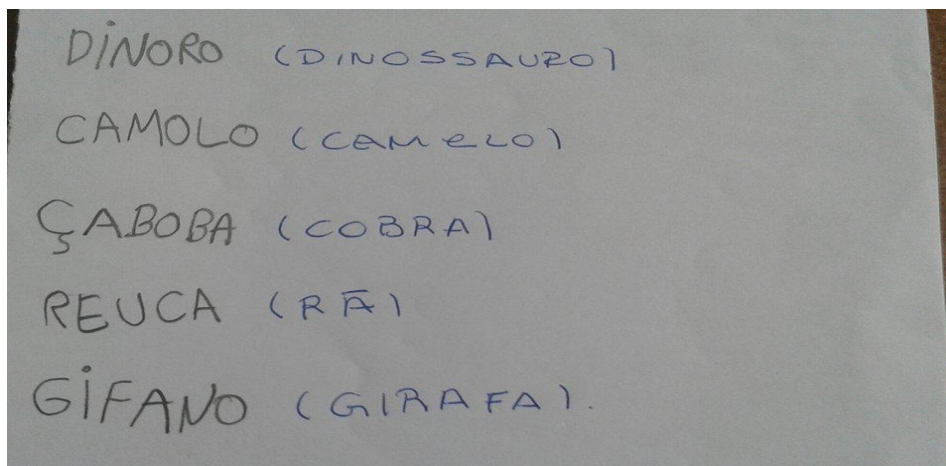 DINORO (DINOSSAURO)
CAMOLO (CAMELO)
ÇABOBA (COBRA)
REUCA (RÃ)
GIFANO (GIRAFA).